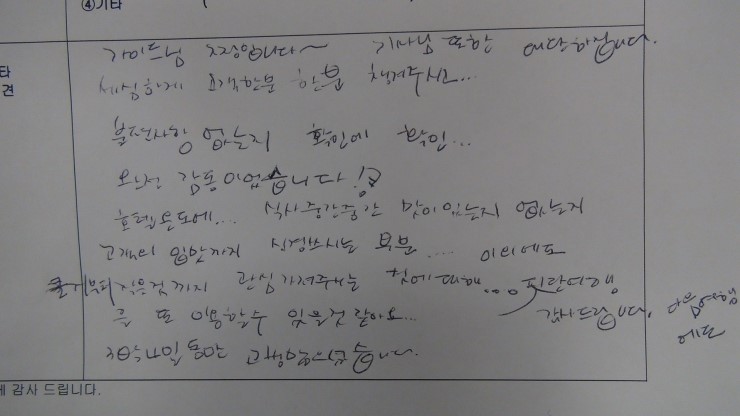 ④기타
타
견
가이드님 최정입니다~ 기사님 또한 대단하십니다.
세심하게 고객한분 한분 챙겨주시고...
불편사항 없는지 확인에 확인...
완전 감동이었습니다!
호텔온도에... 식사중간중간 맛이있는지 없는지
고객의 입맛까지 신경쓰시는 부분.... 이외에도
작은것까지 관심가져주시는 것에대해...
를 또 이용할수 있을것 같아요... 감사드립니다. 다음여행
에도
동안 고생많으셨습니다.
감사 드립니다.